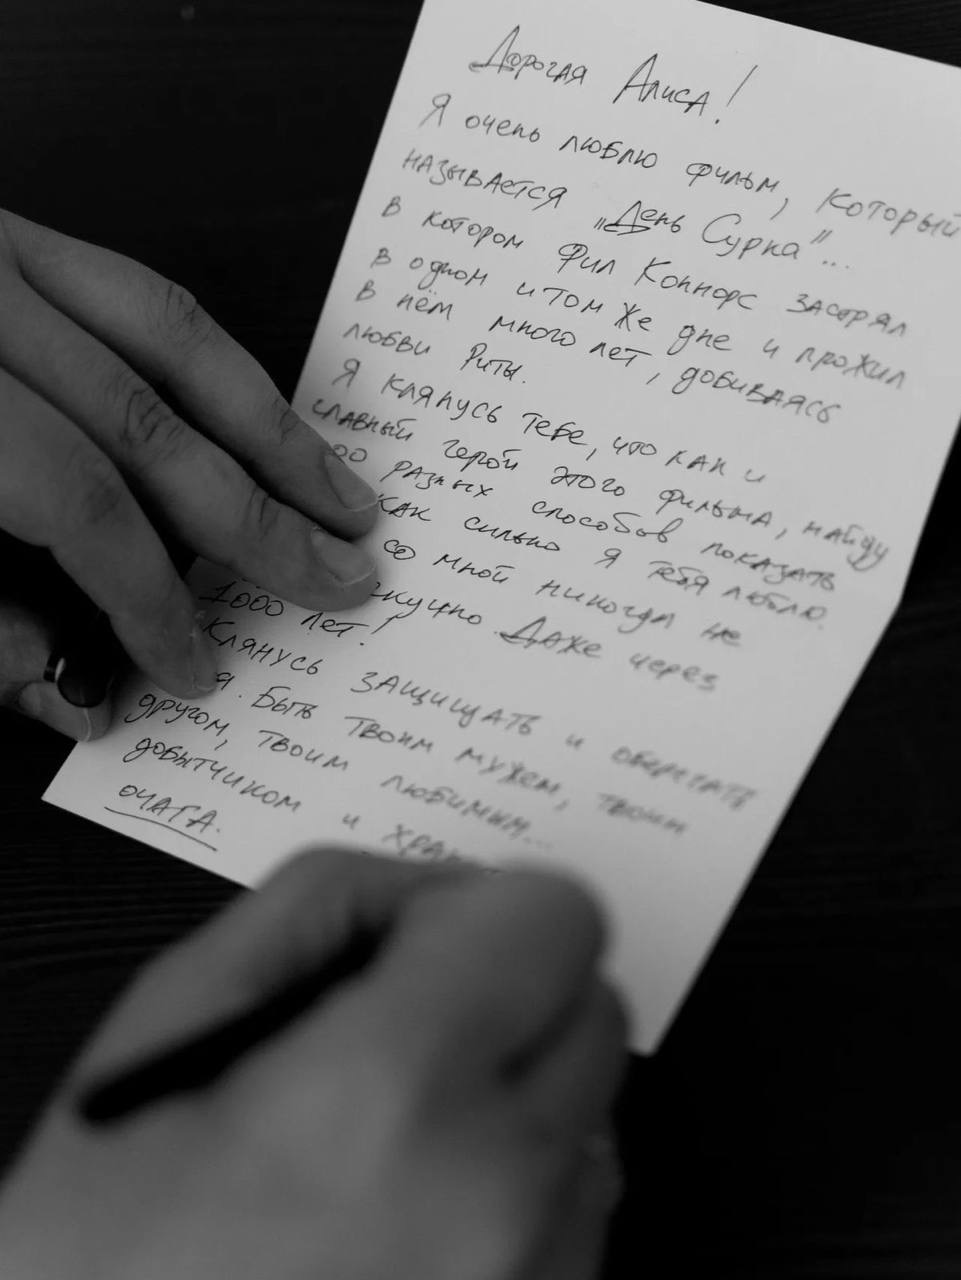 Дорогая Алиса!
Я очень люблю фильм, который
называется „День Сурка"...
в котором Фил Коннорс застрял
в одном и том же дне и прожил
в нём много лет, добиваясь
любви Риты.
Я клянусь тебе, что как и
главный герой этого фильма, найду
00 разных способов показать
как сильно я тебя люблю.
со мной никогда не
скучно. Даже через
1000 лет!
Клянусь защищать и оберегать
я. Быть твоим мужем, твоим
другом, твоим любимым...
добытчиком и
очага.